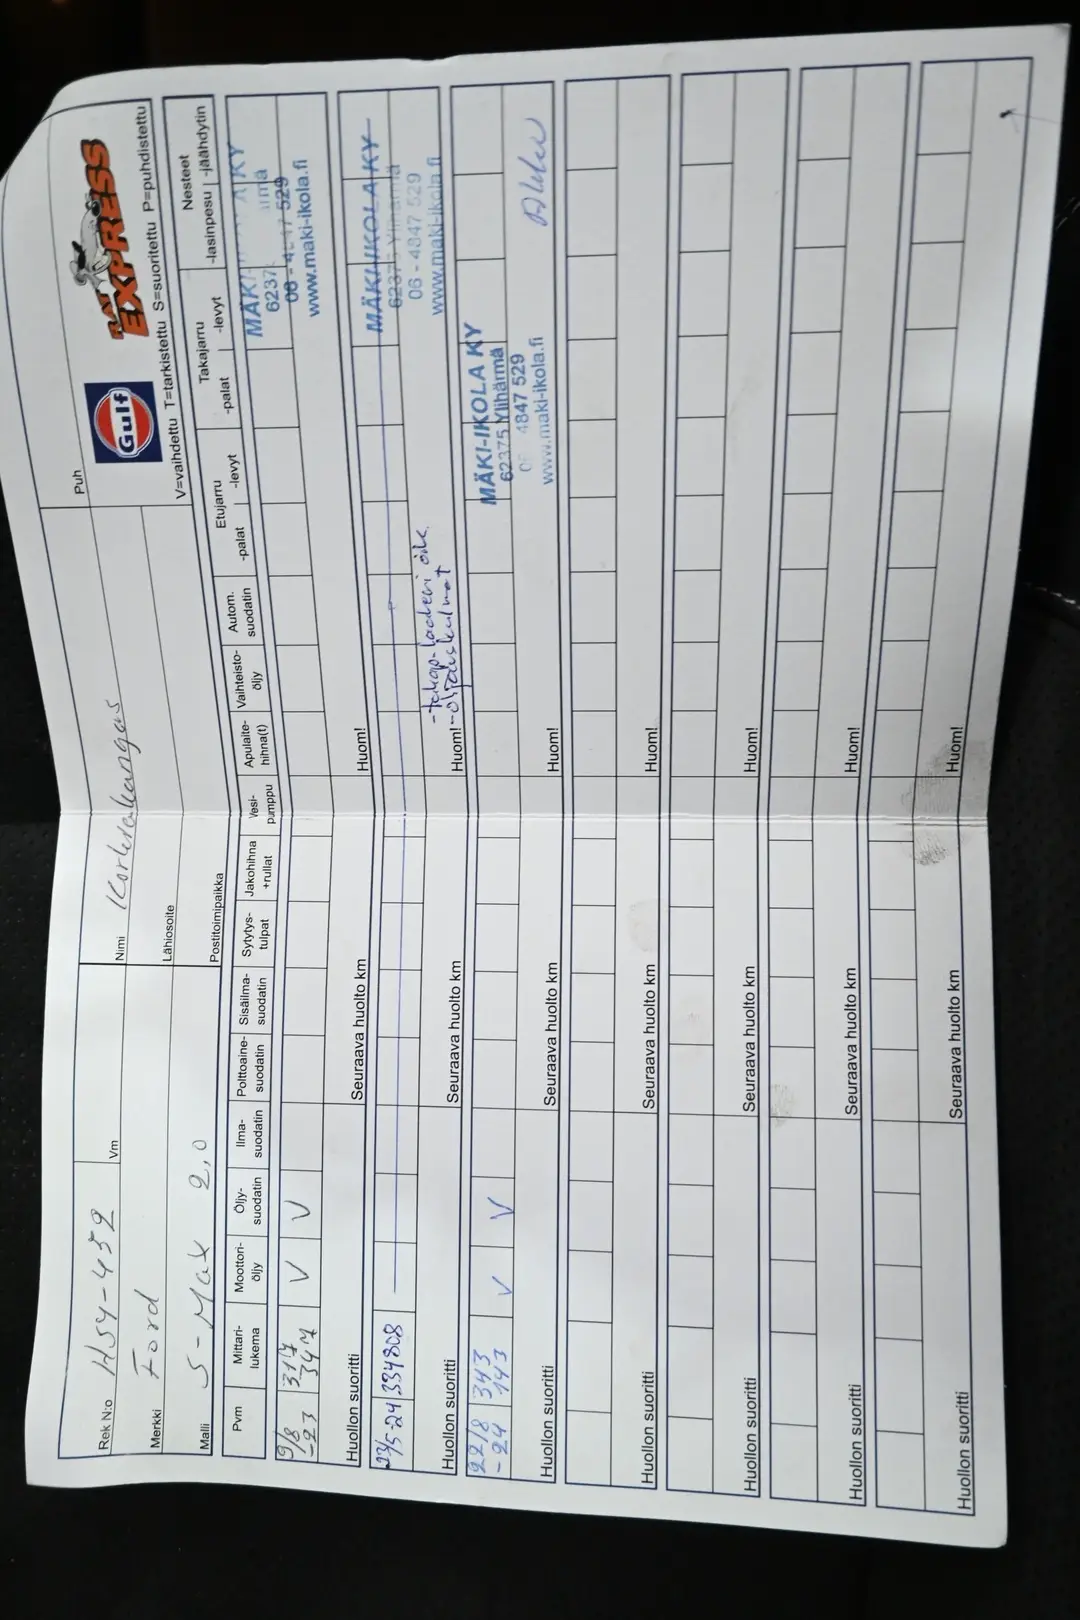 RAY EXPRESS
Gulf
Puh
V=vaihdettu T=tarkistettu S=suoritettu P=puhdistettu
Rek N:o HSY-432 Vm
Nimi
Merkki Ford
Lähiosoite
Malli S-Max 2,0
Postitoimipaikka
Pvm
Mittari-lukema
Moottori-öljy
Öljy-suodatin
Ilma-suodatin
Polttoaine-suodatin
Sisäilma-suodatin
Sytytys-tulpat
Jakohihna +rullat
Vesi-pumppu
Apulaite-hihna(t)
Vaihteisto-öljy
Autom. suodatin
Etujarru -palat -levyt
Takajarru -palat -levyt
Nesteet -lasinpesu -jäähdytin
9/8 -23 317 347 V V
MÄKI- A KY
6237 ärmä
06 - 4847 529
www.maki-ikola.fi
Huollon suoritti Seuraava huolto km Huom!
23/5-24 334808
MÄKI-IKOLA KY
62375 Ylihärmä
06 - 4847 529
www.maki-ikola.fi
Huollon suoritti Seuraava huolto km Huom!
22/8 -24 343 143 V V
MÄKI-IKOLA KY
62375 Ylihärmä
4847 529
www.maki-ikola.fi
Huollon suoritti Seuraava huolto km Huom!
Huollon suoritti Seuraava huolto km Huom!
Huollon suoritti Seuraava huolto km Huom!
Huollon suoritti Seuraava huolto km Huom!
Huollon suoritti Seuraava huolto km Huom!